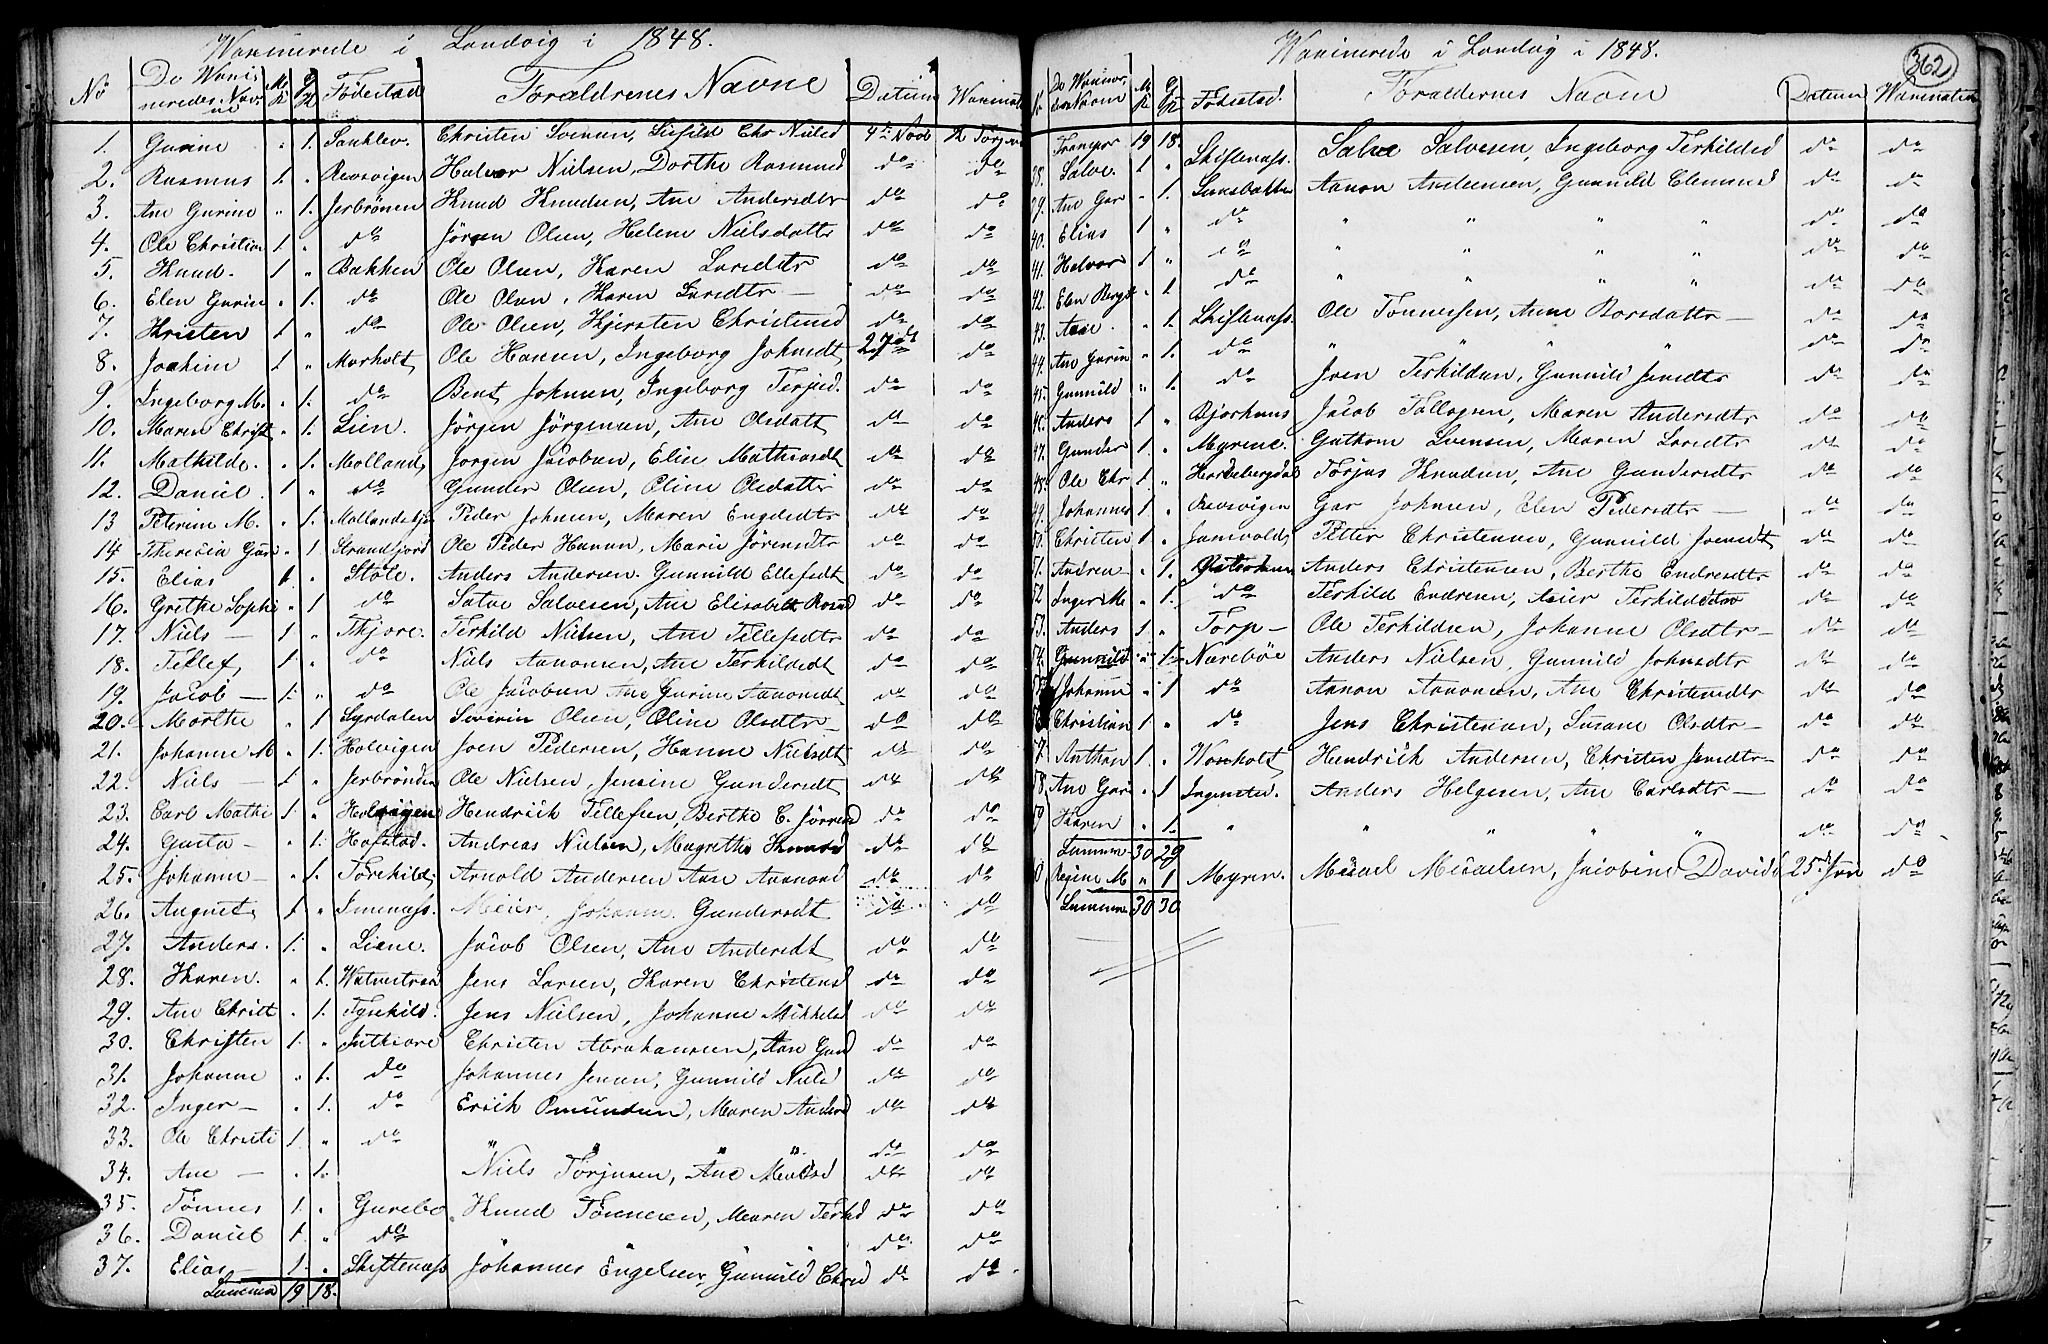 Waxinerede i Landvig i 1848.
No De Waxineredes Navne M.K. Q.K. Födestæd Forældrenes Navne Datum Waxinat
1. Gurine " 1. Christen 4de Novb
2. Rasmus 1. " Revesvigen Halvor Nielsen, Dorthe Rasmusd do do
3. Ane Gurine " 1. Jerbrönen Knud Knudsen, Ane Andersdtr do do
4. Ole Christian 1 " do Jörgen Olsen, Helene Nielsdattr do do
5. Knud. 1 " Bakken Ole Olsen, Karen Larsdtr do do
6. Elen Gurin " 1. do Ole Olsen, Karen Larsdtr — do do
7. Kristen 1 " do Ole Olsen, Kjersten Christensd do do
8. Joachim 1 " Morholt Ole Hansen, Ingeborg Johnsdt 27de do
9. Ingeborg M. " 1. do Bent Johnsen, Ingeborg Terjesd. do do
10. Maren Christ " 1. Lien. Jörgen Jörgensen, Ane Olsdatt do do
11. Mathilde. " 1. Molland, Jörgen Jacobsen, Elin Mathiasdt do do
12. Daniel. 1 " do Gunder Olsen, Oline Olsdattr do do
13 Peterine M. " 1. Peder Johnsen, Maren Engelsdtr do do
14 Theresia Gur " 1 Strandfjord Ole Peder Hansen, Marie Jörensdtr do do
15. Elias 1. " Støle. Anders Andersen. Gunnild Ellefsdt do do
16. Grethe Sophi " 1 do Salve Salvesen, Ane Elisabeth do do
17. Niels — 1 " Terkild Nielsen, Ane Tellefsdtr do do
18. Tellef 1. " do Niels Aanonsen, Ane Terkildsdt do do
19. Jacob — 1. " do Ole Jacobsen Ane Gurine Aanonsdt do do
20. Marthe " 1 Syrdalen Severin Olsen, Oline Olsdtr — do do
21. Johanne M " 1. Holvigen Joen Pedersen, Hanne Nielsdt do do
22. Niels — 1. " Jerbrönden Ole Nielsen, Jensine Gundersdt do do
23. Carl Mathi 1. " Holvigen Hendrich Tellefsen, Berthe C. do do
24. Gusta — " 1. Hafstad. Andreas Nielsen, Magrethe Knudsd do do
25. Johanne — " 1. Arnold Andersen Ane Aanonsd do do
26. August 1 " Imenæss. Meier, Johanne. Gundersdt do do
27. Anders. 1. " Liene. Jacob Olsen, Ane Andersdt do do
28. Karen. " 1. Jens Larsen, Karen Christensd do do
29. Ane Christ " 1. Jens Nielsen, Johanne Mikkelsd do do
30. Christen 1. " Christen Abrahamsen, Ane Gund do do
31. Johanne " 1. do Johannes Jensen, Gunnild Nielsd do do
32. Inger — " 1. do Erich Omundsen, Maren Andersd do do
33. Ole Christi 1. " do " " " " do do
34. Ane — " 1. Niels Törjusen, Ane do do
35. Tönnes 1. " Gurebo Knud Tönnesen, Maren Terkd do do
36. Daniel 1. " do do do
37. Elias — 1. " Skiftenæss Johannes Engelsen, Gunnild Chrsd do do
Summa 19 18.
Waxinerede i Landvig i 1848. 362
No De Waxineredes Navn M.K. Q.K. Födested. Forældernes Navne Datum Waxinatör
Transpor 19 18.
38. Salve. 1 " Skiftenæss. Salve Salvesen, Ingeborg Terkildsd do do
39. Ane Gur " 1. Aanon Andersen, Gunnild Clemmesd do do
40. Elias 1 " do " " " " do do
41. Halvor 1. " do " " " " do do
42. Elen Bergt " 1 do " " " " do do
43. Ane. " 1. Skiftenæss. Ole Tönnesen, Anne Borsdattr — do do
44. Ane Gurin " 1. do " " " " do do
45. Gunnild " 1. do Joen Terkildsen, Gunnild Jensdtr do do
46. Anders 1 " Jacob Tallagsen, Maren Andersdtr do do
47. Gunder 1. " Myrene. Guthorm Svensen, Maren Larsdtr do do
48. Ole Chr 1. " Törjus Knudsen, Ane Gundersdtr do do
49. Johannes 1 " Revesvigen Gar Johnsen, Elen Pedersdtr — do do
50. Christen 1. " Petter Christensen, Gunnild Joensdt do do
51. Andrea — " 1. Anders Christensen, Berthe Endresdtr do do
52 Inger M " 1. do Terkild Endresen, Terkildsdtr do do
53. Anders 1. " Torp — Ole Terkildsen, Johanne Olsdtr — do do
54. Gunnild " 1. Nærebøe Anders Nielsen, Gunnild Johnsdtr do do
Johanne " 1 do Aanon Aanonsen, Ane Christensdtr do do
Christian 1. " do Jens Christensen, Susane Olsdtr — do do
57 Anthon 1. " Woxholt Hendrich Andersen, Christen Jensdtr — do do
58. Ane Gur " 1 Ingensted. Anders Helgesen, Ane Carlsdtr — do do
59 Karen " 1. " " " " " do do
Summa 30 29
Regine M " 1 Myren. Micael Micaelsen, Jacobine Davids 25de Juni do
Summa 30 30